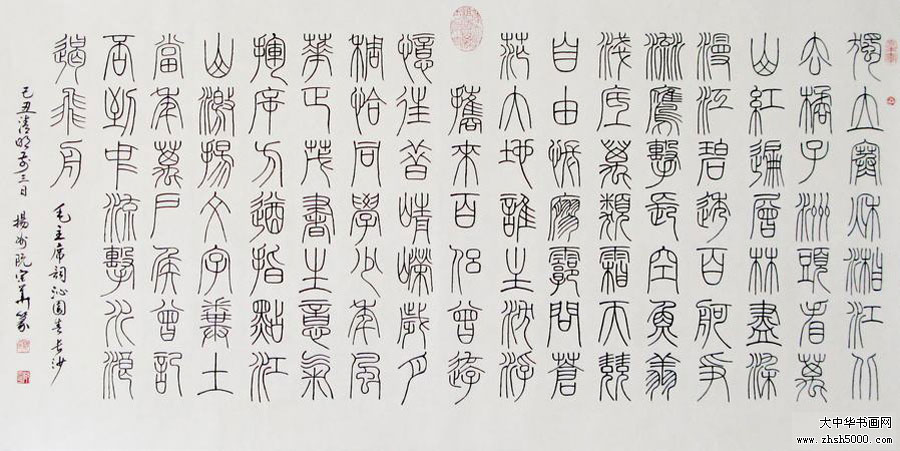 獨立寒秋湘江北
去橘子洲頭看萬
山紅遍層林盡染
漫江碧透百舸爭
流鷹擊長空魚翔
淺底萬類霜天競
自由悵寥廓問蒼
茫大地誰主沉浮
攜來百侶曾遊
憶往昔崢嶸歲月
稠恰同學少年風
華正茂書生意氣
揮斥方遒指點江
山激揚文字糞土
當年萬戶侯曾記
否到中流擊水浪
遏飛舟
毛主席詞沁園春長沙
己丑清明前三日 揚州阮
大中华书画网
www.zhsh5000.com